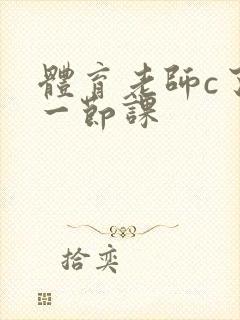 體育老師c了
一節課
拾奕